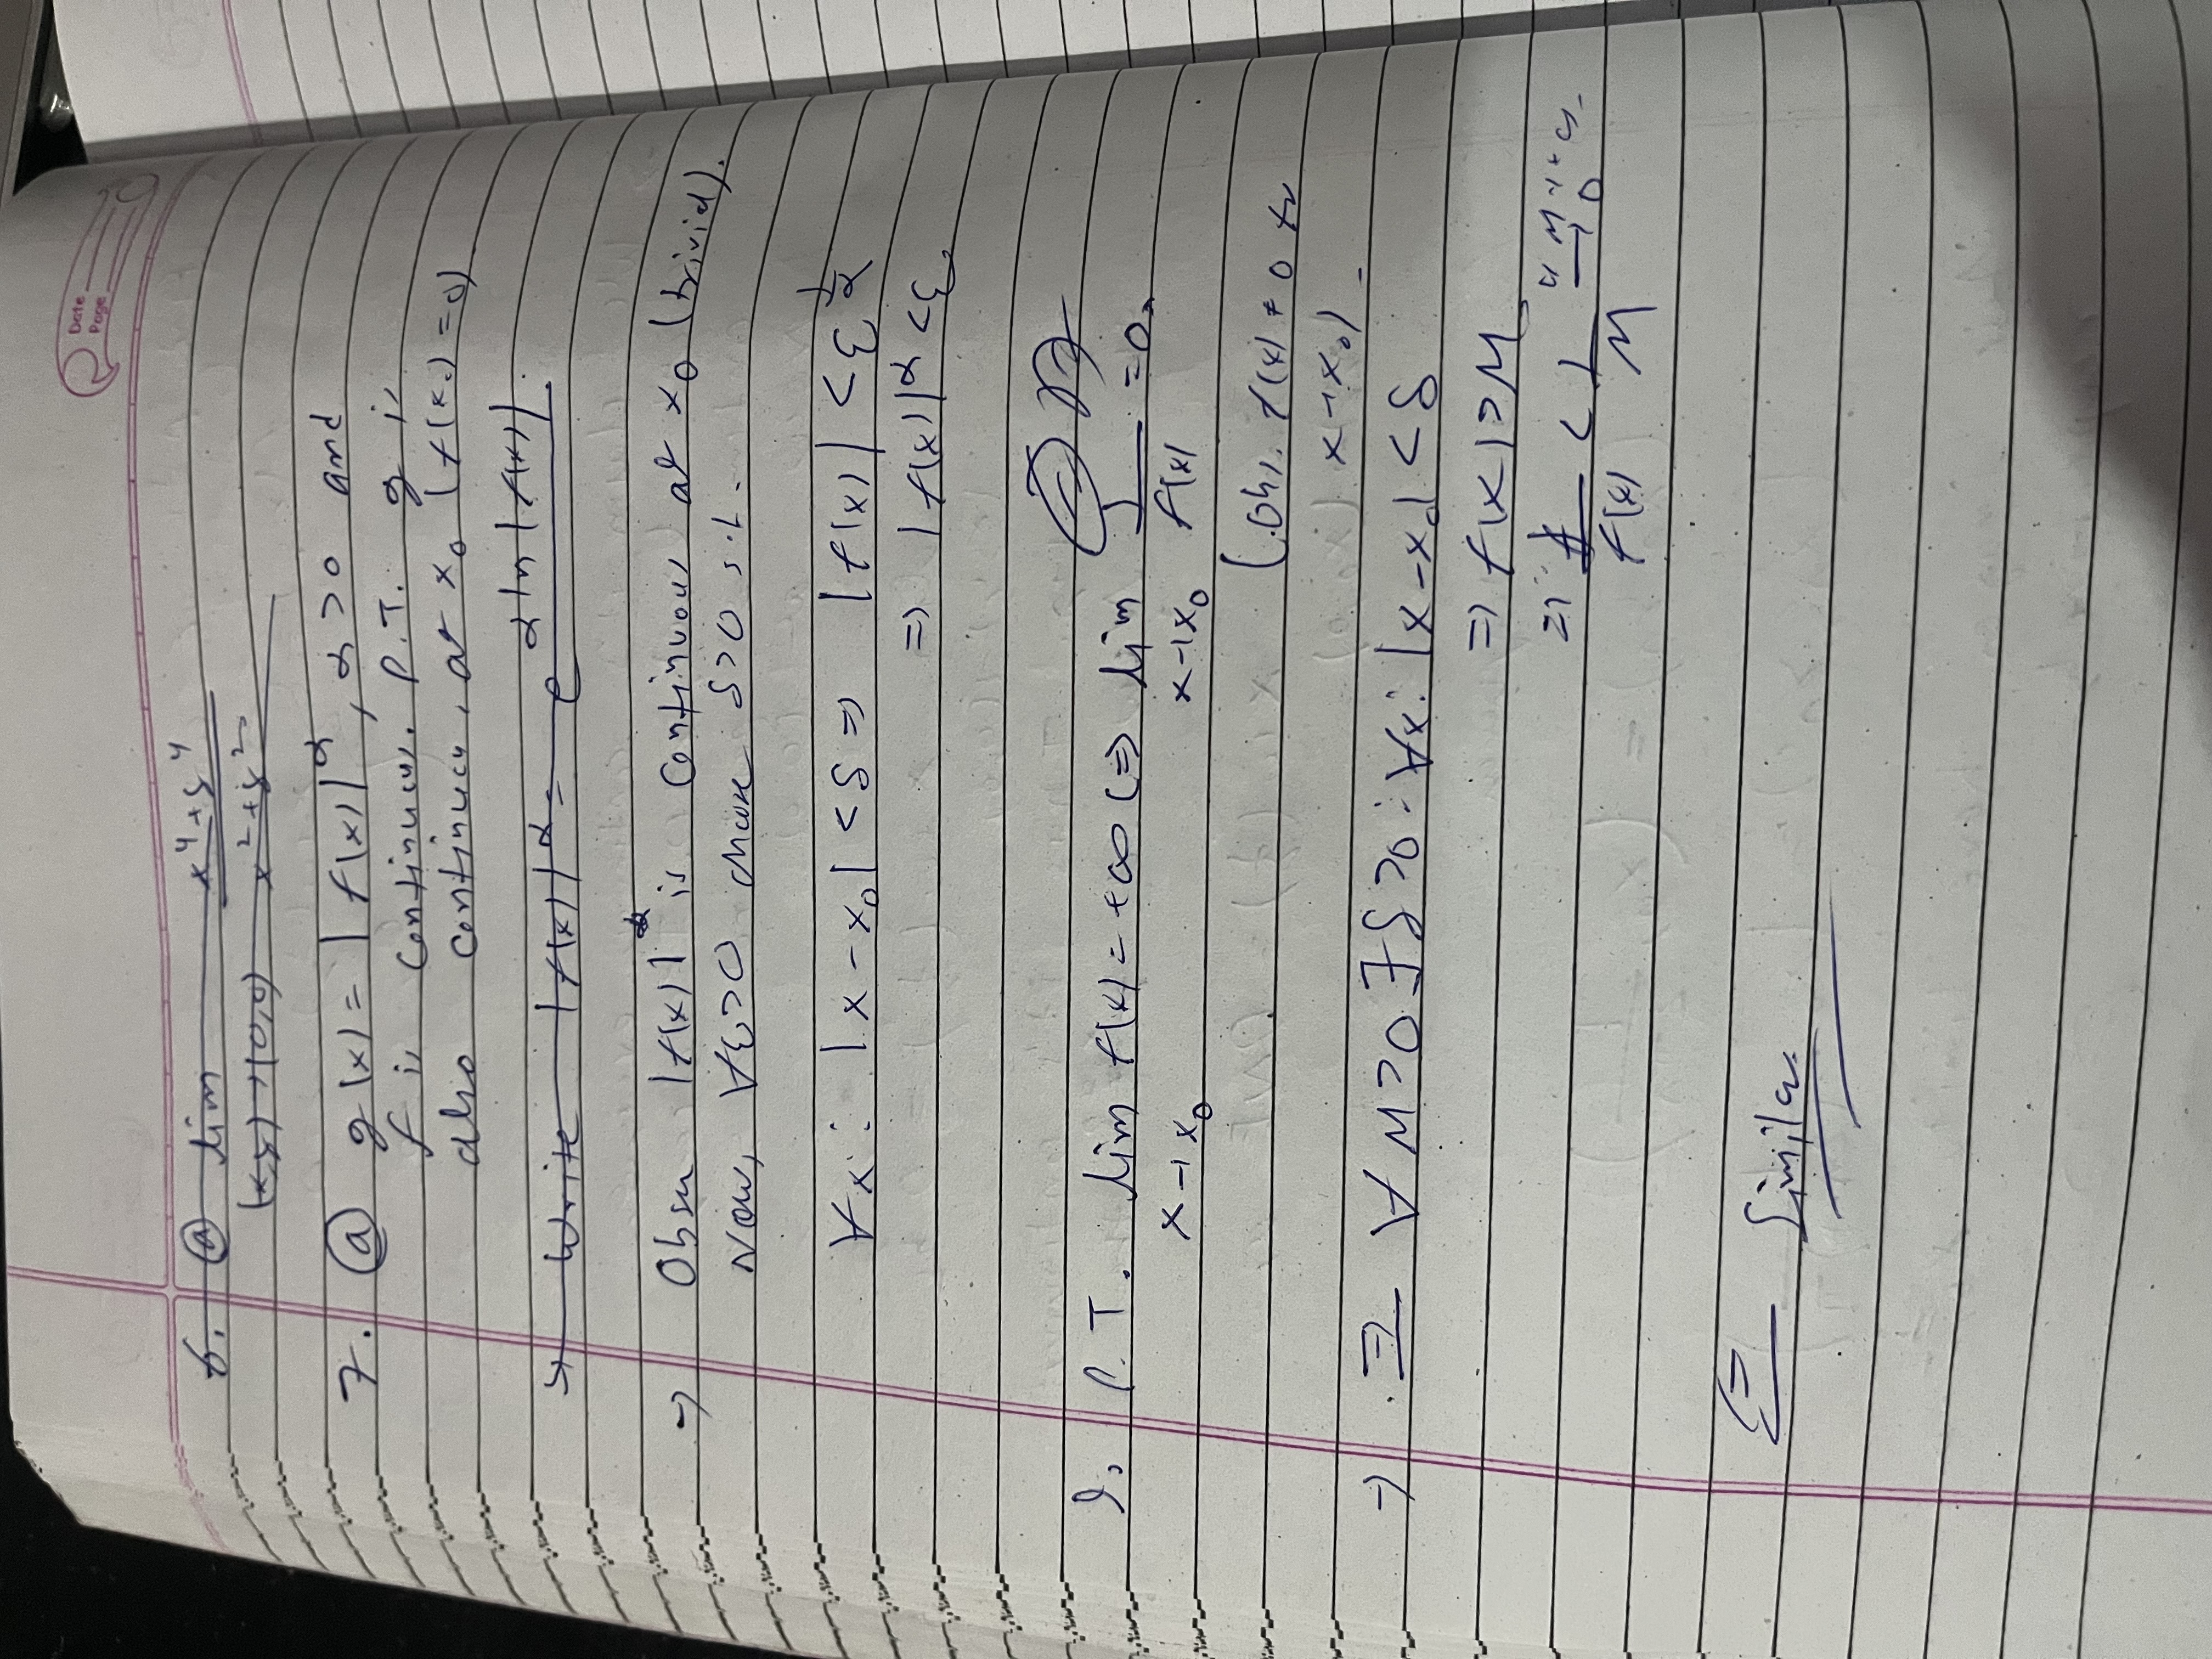 Date
Page
6. (a) lim x⁴+y⁴
(x,y)→(0,0) x²+y²
7. (a) g(x) = |f(x)|^α, α>0 and
f is continuous. P.T. g is
also continuous at x₀ (f(x₀)=0)
→ Write |f(x)|^α = e^(α ln|f(x)|).
→ Obser |f(x)| is continuous at x₀ (trivial).
Now, ∀ε>0 choose δ>0 s.t.
∀x: |x-x₀|<δ ⇒ |f(x)|<ε^(1/α)
⇒ |f(x)|^α<ε
P.T. lim f(x)=+∞ ⇔ lim 1/f(x) =0.
x→x₀ x→x₀
(Obs. f(x)≠0 for
x→x₀).
→ ⇒ ∀M>0 ∃δ>0: ∀x: |x-x₀|<δ
⇒ f(x)>M
⇒ 1/f(x) < 1/M → 0
⇐ Similar.